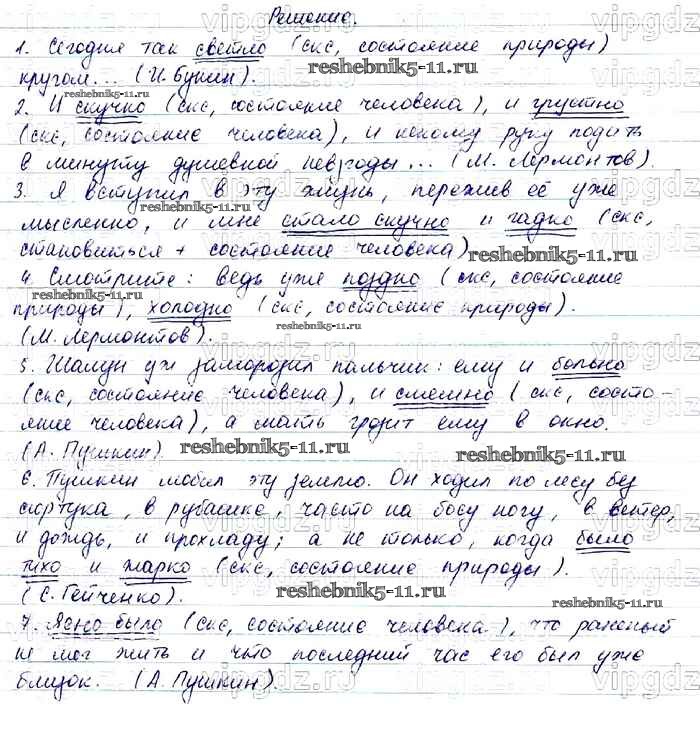 Решение.
1. Сегодня так светло (скс, состояние природы)
кругом... (И. Бунин).
2. И скучно (скс, состояние человека), и грустно
(скс, состояние человека), и некому руку подать
в минуту душевной невзгоды... (М. Лермонтов).
3. Я вступил в эту жизнь, пережив её уже
мысленно, и мне стало скучно и гадко (скс,
становиться + состояние человека)
4. Смотрите: ведь уже поздно (скс, состояние
природы), холодно (скс, состояние природы).
(М. Лермонтов).
5. Шалун уж заморозил пальчик: ему и больно
(скс, состояние человека), и смешно (скс, состо-
яние человека), а мать грозит ему в окно.
(А. Пушкин)
6. Пушкин любил эту землю. Он ходил по лесу без
сюртука, в рубашке, часто на босу ногу, в ветер,
и дождь, и прохладу; а не только, когда было
тихо и жарко (скс, состояние природы).
(С. Гейченко).
7. Ясно было (скс, состояние человека), что раненый
не мог жить и что последний час его был уже
близок. (А. Пушкин).
vipgdz.ru
reshebnik5-11.ru
reshebnik5-11.ru
reshebnik5-11.ru
reshebnik5-11.ru
reshebnik5-11.ru
reshebnik5-11.ru
reshebnik5-11.ru
reshebnik5-11.ru
reshebnik5-11.ru
reshebnik5-11.ru